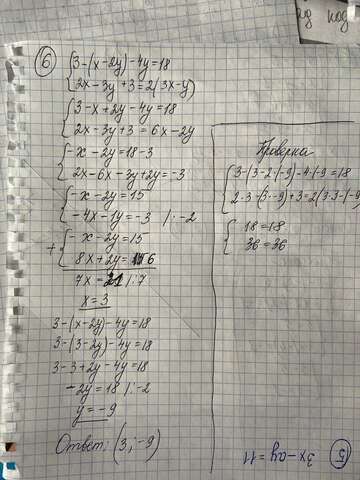 6
3-(x-2y)-4y=18
2x-3y+3=2(3x-y)
3-x+2y-4y=18
2x-3y+3=6x-2y
-x-2y=18-3
2x-6x-3y+2y=-3
-x-2y=15
-4x-1y=-3 /·-2
+
-x-2y=15
8x+2y=6
7x=21 /:7
x=3
3-(x-2y)-4y=18
3-(3-2y)-4y=18
3-3+2y-4y=18
-2y=18 /:-2
y=-9
Ответ: (3; -9)
Проверка
3-(3-2·(-9))-4·(-9)=18
2·3-(3·-9)+3=2(3·3-(-9))
18=18
36=36
5
3x-ay=11